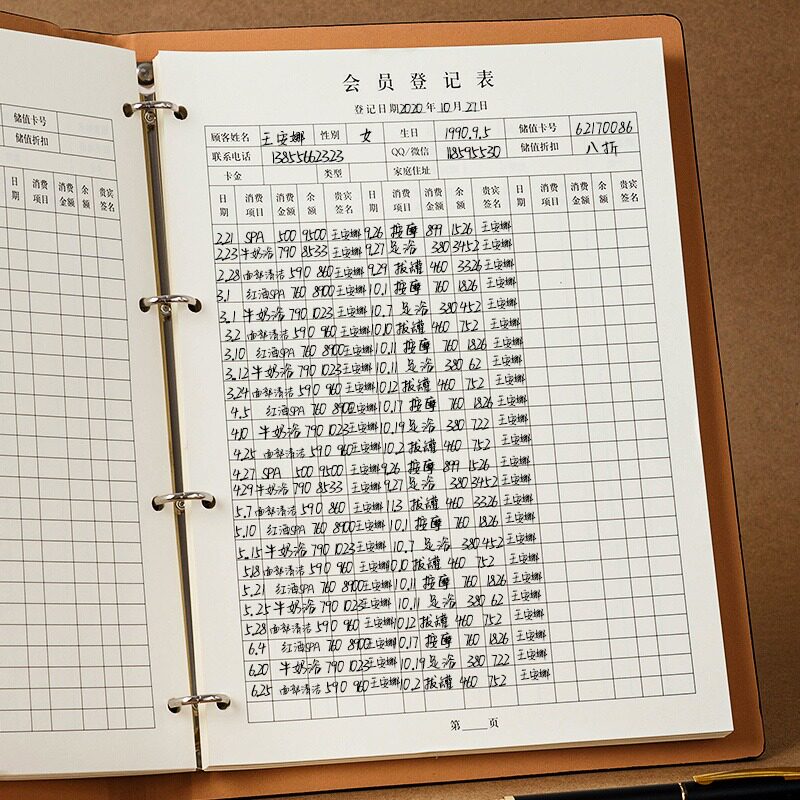 储值卡号
储值折扣
日期 消费项目 消费金额 余额 贵宾签名
会员登记表
登记日期2020年10月27日
顾客姓名 王安娜 性别 女 生日 1990.9.5 储值卡号 62170086
联系电话 13855662323 QQ/微信 118595530 储值折扣 八折
卡金 类型 家庭住址
日期 消费项目 消费金额 余额 贵宾签名 日期 消费项目 消费金额 余额 贵宾签名 日期 消费项目 消费金额 余额 贵宾签名
2.21 SPA 500 9500 王安娜 9.26 按摩 899 1526 王安娜
2.23 牛奶浴 790 8533 王安娜 9.27 足浴 380 3452 王安娜
2.28 面部清洁 590 860 王安娜 9.29 拔罐 460 3326 王安娜
3.1 红酒SPA 760 8900 王安娜 10.1 按摩 760 1826 王安娜
3.1 牛奶浴 790 1023 王安娜 10.7 足浴 380 452 王安娜
3.2 面部清洁 590 960 王安娜 10.10 拔罐 460 752 王安娜
3.10 红酒SPA 760 8900 王安娜 10.11 按摩 760 1826 王安娜
3.12 牛奶浴 790 1023 王安娜 10.11 足浴 380 62 王安娜
3.24 面部清洁 590 960 王安娜 10.12 拔罐 460 752 王安娜
4.5 红酒SPA 760 8900 王安娜 10.17 按摩 760 1826 王安娜
4.10 牛奶浴 790 1023 王安娜 10.19 足浴 380 722 王安娜
4.25 面部清洁 590 960 王安娜 10.2 拔罐 460 752 王安娜
4.27 SPA 500 9500 王安娜 9.26 按摩 899 1526 王安娜
4.29 牛奶浴 790 8533 王安娜 9.27 足浴 380 3452 王安娜
5.7 面部清洁 590 860 王安娜 11.3 拔罐 460 3326 王安娜
5.10 红酒SPA 760 8900 王安娜 10.1 按摩 760 1826 王安娜
5.15 牛奶浴 790 1023 王安娜 10.7 足浴 380 452 王安娜
5.18 面部清洁 590 960 王安娜 10.10 拔罐 460 752 王安娜
5.21 红酒SPA 760 8900 王安娜 10.11 按摩 760 1826 王安娜
5.25 牛奶浴 790 1023 王安娜 10.11 足浴 380 62 王安娜
5.28 面部清洁 590 960 王安娜 10.12 拔罐 460 752 王安娜
6.4 红酒SPA 760 8900 王安娜 10.17 按摩 760 1826 王安娜
6.20 牛奶浴 790 1023 王安娜 10.19 足浴 380 722 王安娜
6.25 面部清洁 590 960 王安娜 10.2 拔罐 460 752 王安娜
第 页